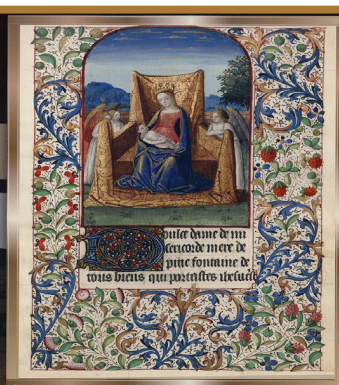 oulce dame de mi
sericorde mere de
pitie fontaine de
tous biens qui portastes ihesucrist